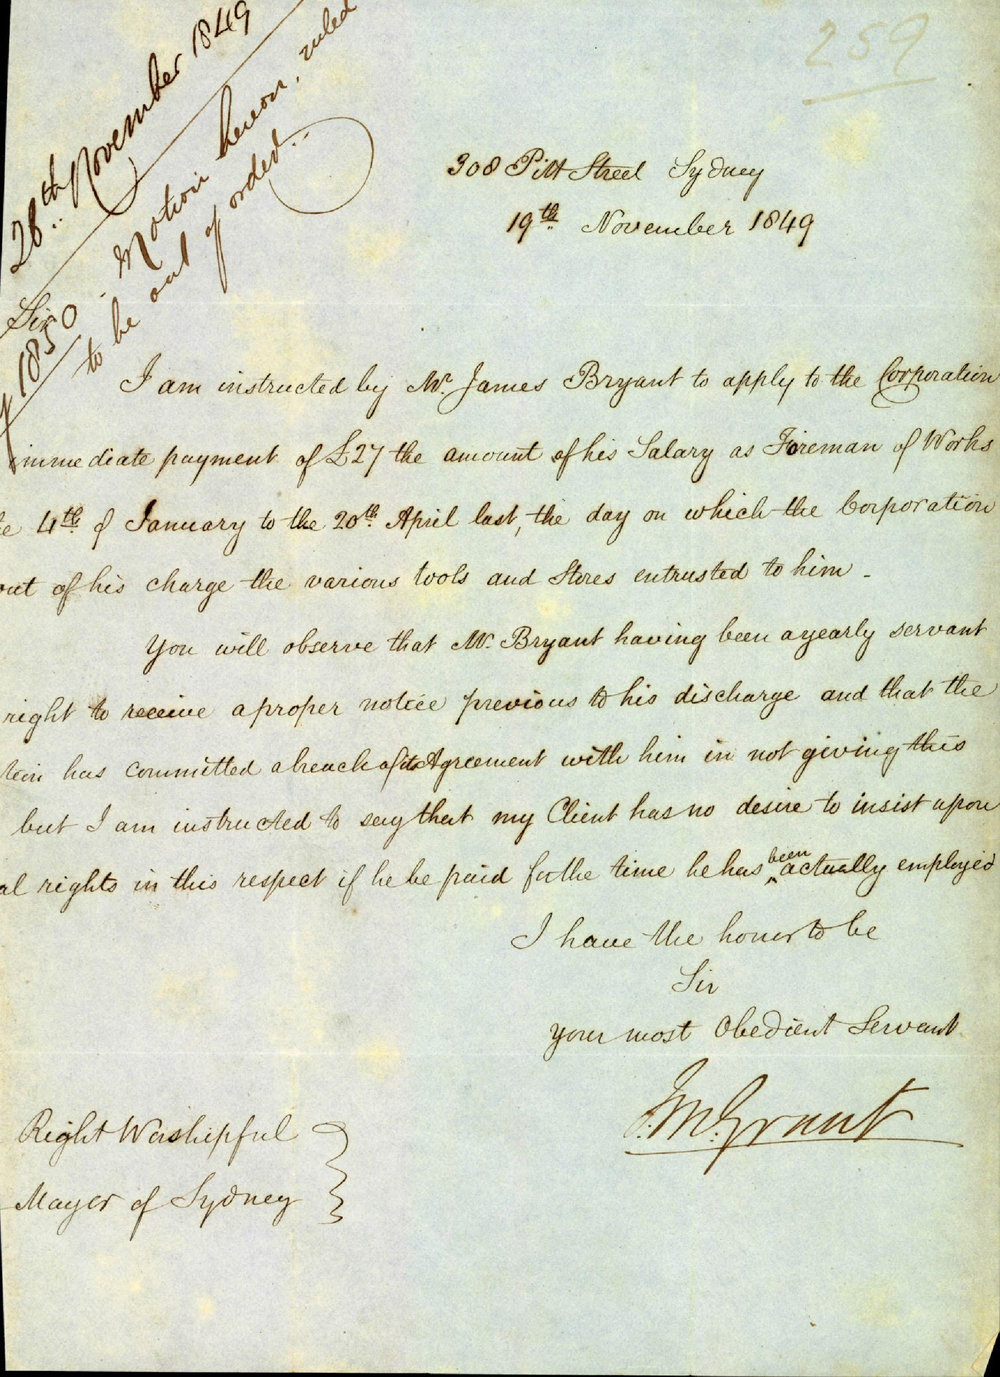 259
28th. November 1849
Motion hereon, ruled
to be out of order.
1850
308 Pitt Street Sydney
19th November 1849
Sir
I am instructed by Mr. James Bryant to apply to the Corporation
immediate payment of £27 the amount of his Salary as Foreman of Works
4th of January to the 20th April last, the day on which the Corporation
out of his charge the various tools and Stores entrusted to him -
You will observe that Mr. Bryant having been a yearly servant
right to receive a proper notice previous to his discharge and that the
tion has committed a breach of its Agreement with him in not giving this
but I am instructed to say that my Client has no desire to insist upon
al rights in this respect if he be paid for the time he has been actually employed
I have the honor to be
Sir
your most Obedient Servant
Right Worshipful
Mayor of Sydney